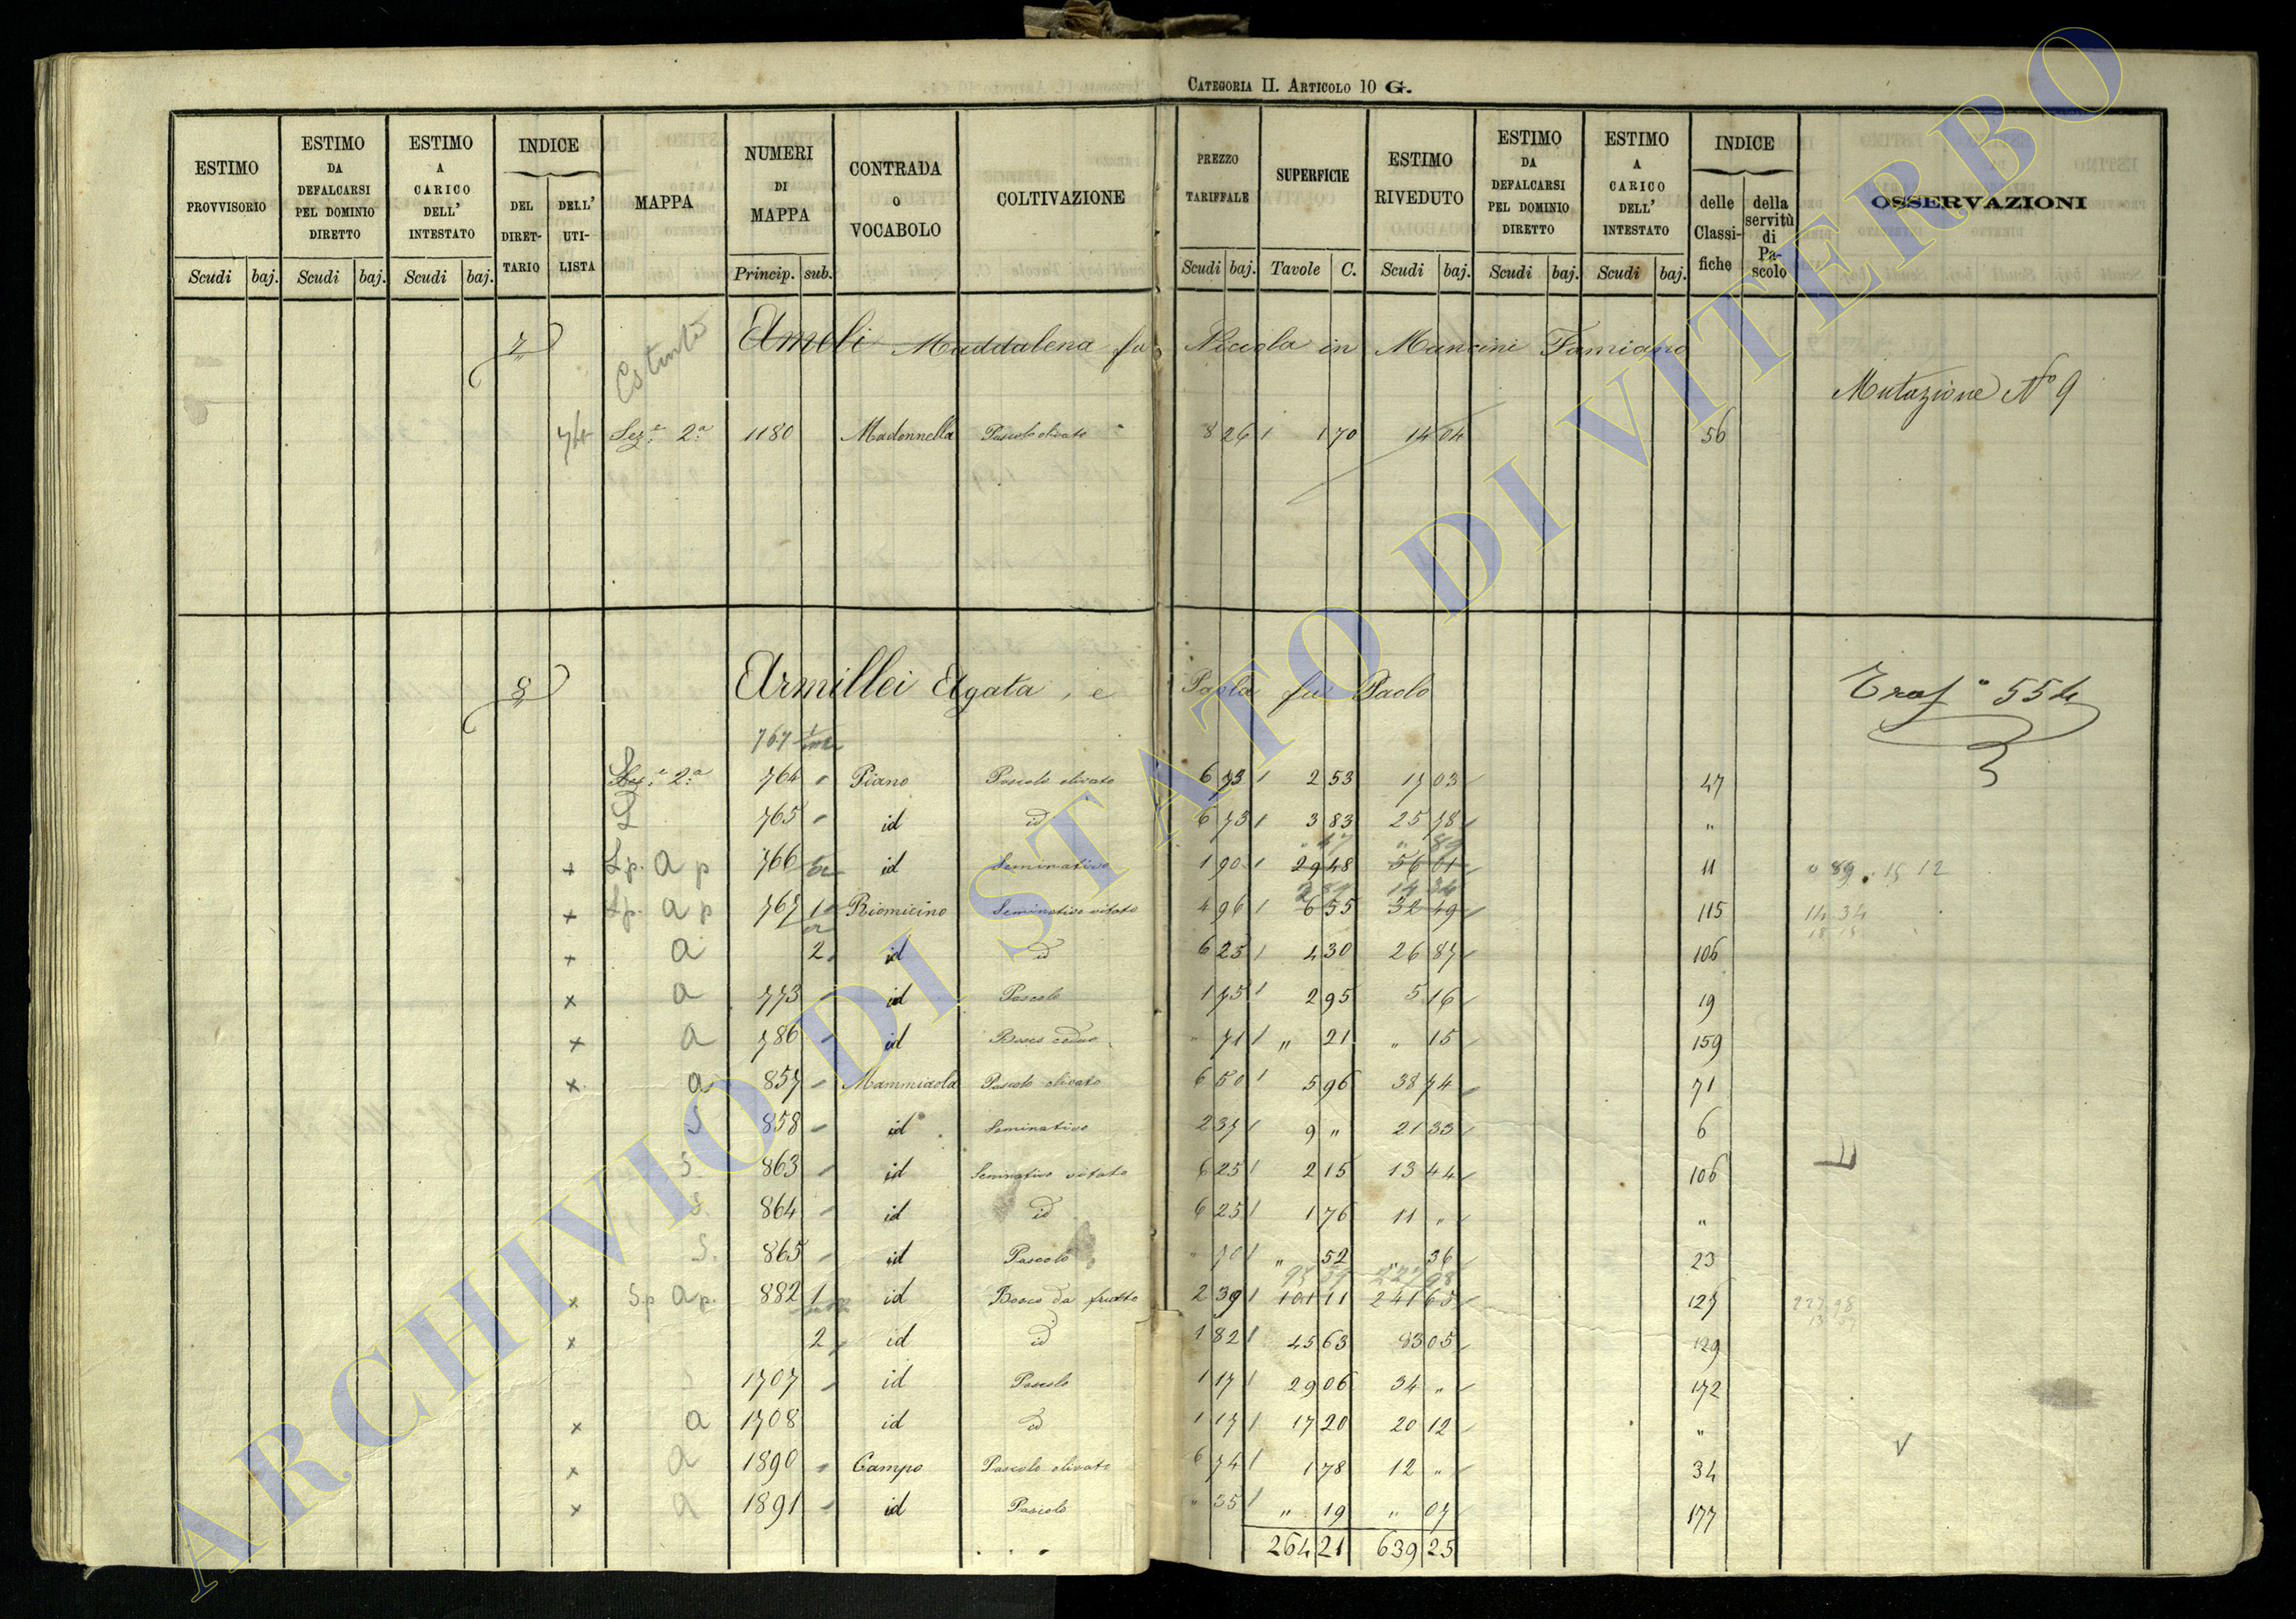 CATEGORIA II. ARTICOLO 10 G.
ESTIMO PROVVISORIO Scudi baj.
ESTIMO DA DEFALCARSI PEL DOMINIO DIRETTO Scudi baj.
ESTIMO A CARICO DELL' INTESTATO Scudi baj.
INDICE DEL DIRET- TARIO DELL' UTI- LISTA
MAPPA
NUMERI DI MAPPA Princip. sub.
CONTRADA O VOCABOLO
COLTIVAZIONE
PREZZO TARIFFALE Scudi baj.
SUPERFICIE Tavole C.
ESTIMO RIVEDUTO Scudi baj.
ESTIMO DA DEFALCARSI PEL DOMINIO DIRETTO Scudi baj.
ESTIMO A CARICO DELL' INTESTATO Scudi baj.
INDICE delle Classi- fiche della servitù di Pa- scolo
OSSERVAZIONI
7 Estinto Ameli Maddalena fu Niccola in Mancini Famiano
Mutazione No 9
Sez.e 2.a 1180 Madonnella Pascolo olivato 8 26 1 70 14 04 56
8 Armillei Agata, e Paola fu Paolo
Trasf.o 554
767
Sez.e 2.a 764 Piano Pascolo olivato 6 73 2 53 17 03 47
765 id id 6 73 3 83 25 78 "
" 17 " 89
x Sp. a p 766 id Seminativo 1 90 29 48 56 01 11 " 89 . 15 12
2 89 14 34
x Sp. a p 767 1 Riomicino Seminativo vitato 4 96 6 55 32 49 115 14 34
18 15
x a 2 id id 6 25 4 30 26 87 106
x a 773 id Pascolo 1 75 2 95 5 16 19
x a 786 id Bosco ceduo " 71 " 21 " 15 159
x a 857 Mammiaola Pascolo olivato 6 50 5 96 38 74 71
S 858 id Seminativo 2 37 9 " 21 33 6
S. 863 id Seminativo vitato 6 25 2 15 13 44 106
S. 864 id id 6 25 1 76 11 " "
S. 865 id Pascolo " 70 " 52 " 36 23
95 39 227 98
x Sp a p. 882 1 id Bosco da frutto 2 39 101 11 241 65 127 227 98
x 2 id id 1 82 45 63 83 05 129
S 1707 id Pascolo 1 17 29 06 34 " 172
x a 1708 id id 1 17 17 20 20 12 "
x a 1890 Campo Pascolo olivato 6 74 1 78 12 " 34
x a 1891 id Pascolo " 35 " 19 " 07 177
264 21 639 25
ARCHIVIO DI STATO DI VITERBO